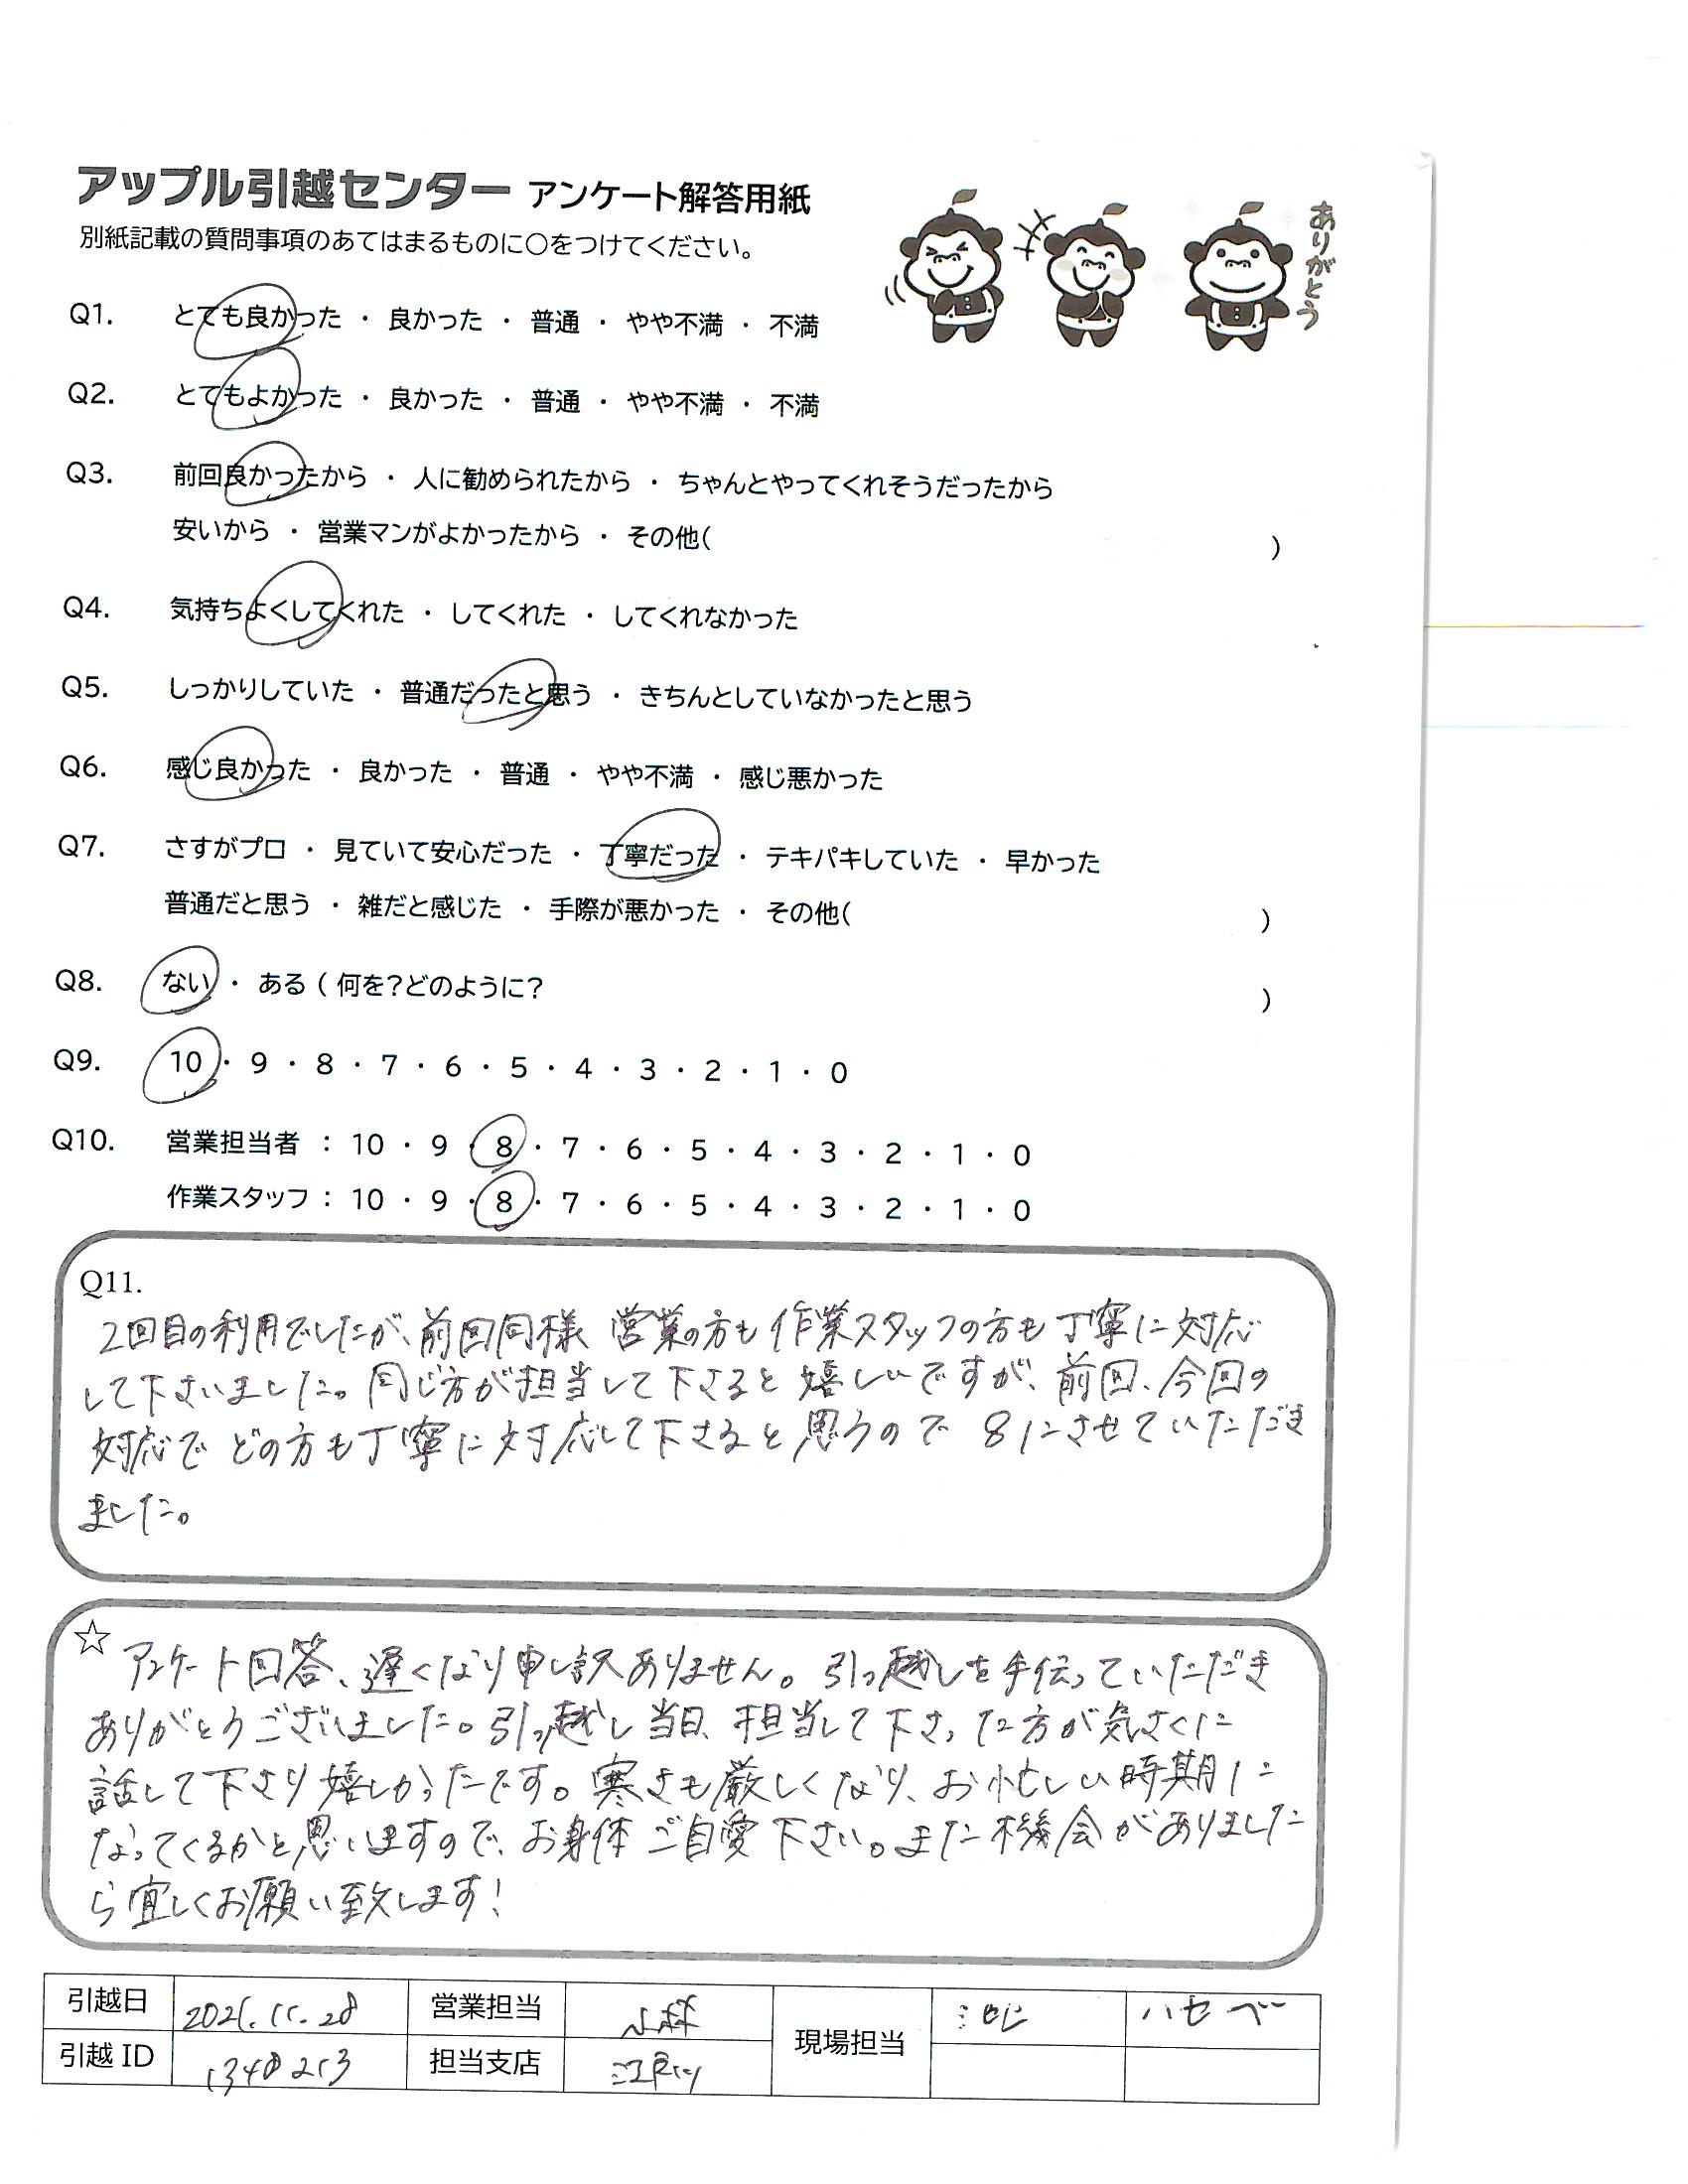 アップル引越センター アンケート解答用紙
ありがとう
別紙記載の質問事項のあてはまるものに〇をつけてください。
Q1. とても良かった ・ 良かった ・ 普通 ・ やや不満 ・ 不満
Q2. とてもよかった ・ 良かった ・ 普通 ・ やや不満 ・ 不満
Q3. 前回良かったから ・ 人に勧められたから ・ ちゃんとやってくれそうだったから
安いから ・ 営業マンがよかったから ・ その他( )
Q4. 気持ちよくしてくれた ・ してくれた ・ してくれなかった
Q5. しっかりしていた ・ 普通だったと思う ・ きちんとしていなかったと思う
Q6. 感じ良かった ・ 良かった ・ 普通 ・ やや不満 ・ 感じ悪かった
Q7. さすがプロ ・ 見ていて安心だった ・ 丁寧だった ・ テキパキしていた ・ 早かった
普通だと思う ・ 雑だと感じた ・ 手際が悪かった ・ その他( )
Q8. ない ・ ある ( 何を?どのように? )
Q9. 10 ・ 9 ・ 8 ・ 7 ・ 6 ・ 5 ・ 4 ・ 3 ・ 2 ・ 1 ・ 0
Q10. 営業担当者 : 10 ・ 9 ・ 8 ・ 7 ・ 6 ・ 5 ・ 4 ・ 3 ・ 2 ・ 1 ・ 0
作業スタッフ : 10 ・ 9 ・ 8 ・ 7 ・ 6 ・ 5 ・ 4 ・ 3 ・ 2 ・ 1 ・ 0
Q11.
2回目の利用でしたが、前回同様 営業の方も作業スタッフの方も丁寧に対応
して下さいました。同じ方が担当して下さると嬉しいですが、前回、今回の
対応で どの方も丁寧に対応して下さると思うので 8にさせていただき
ました。
☆ アンケート回答、遅くなり申し訳ありません。引っ越しを手伝っていただき
ありがとうございました。引っ越し当日、担当して下さった方が気さくに
話して下さり嬉しかったです。寒さも厳しくなり、お忙しい時期に
なってくるかと思いますので、お身体ご自愛下さい。また機会がありました
ら宜しくお願い致します!
引越日 2021.11.28 営業担当 小林 現場担当 ハセベー
引越 ID 1348213 担当支店